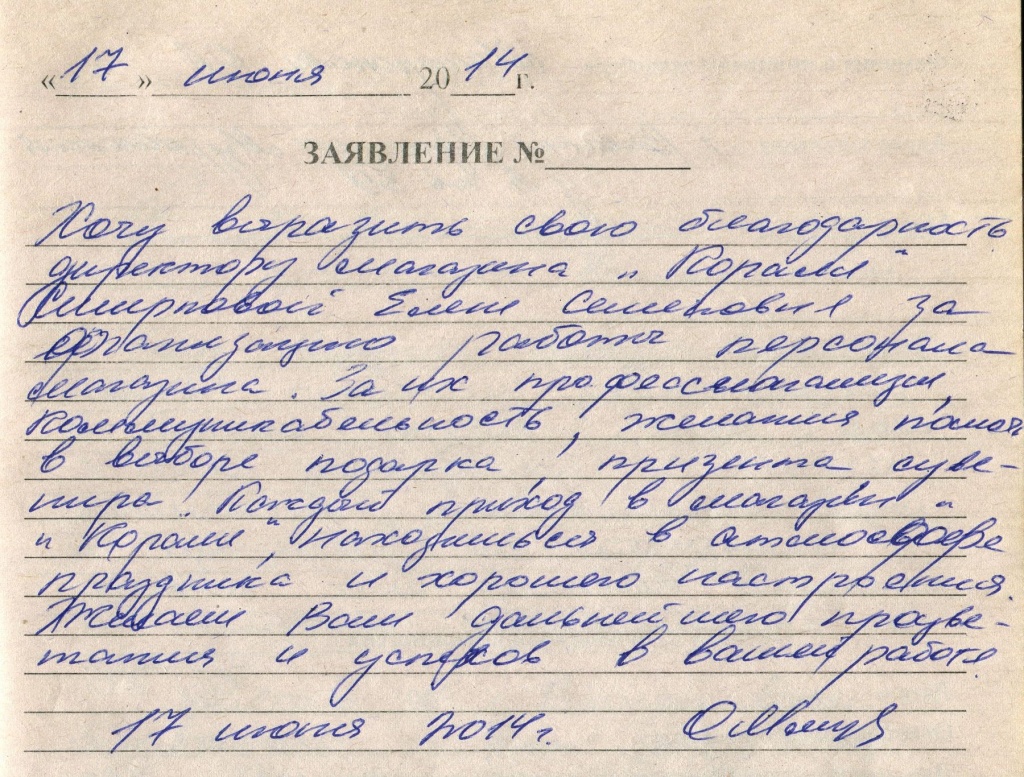 «17» июня 2014г.
ЗАЯВЛЕНИЕ №
Хочу выразить свою благодарность
директору магазина "Коралл"
Смирновой Елене Семеновне за
организацию работы персонала
магазина. За их профессионализм,
коммуникабельность, желания помочь
в выборе подарка, призента суве-
нира. Каждый приход в магазин "
" Коралл", находишься в атмосфере
праздника и хорошего настроения.
Желаем Вам дальнейшего процве-
тания и успехов в вашей работе.
17 июня 2014г.